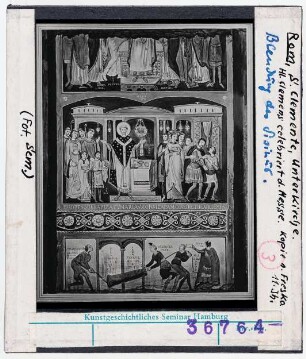 Rom, S. Clemente, Unterkirche
Hl. Clemens celebriert d. Messe. Kopie n. Fresko
11. Jh.
Blendung des Sisinus.
3
(Fot. Sem.)
Kunstgeschichtliches Seminar Hamburg
36764